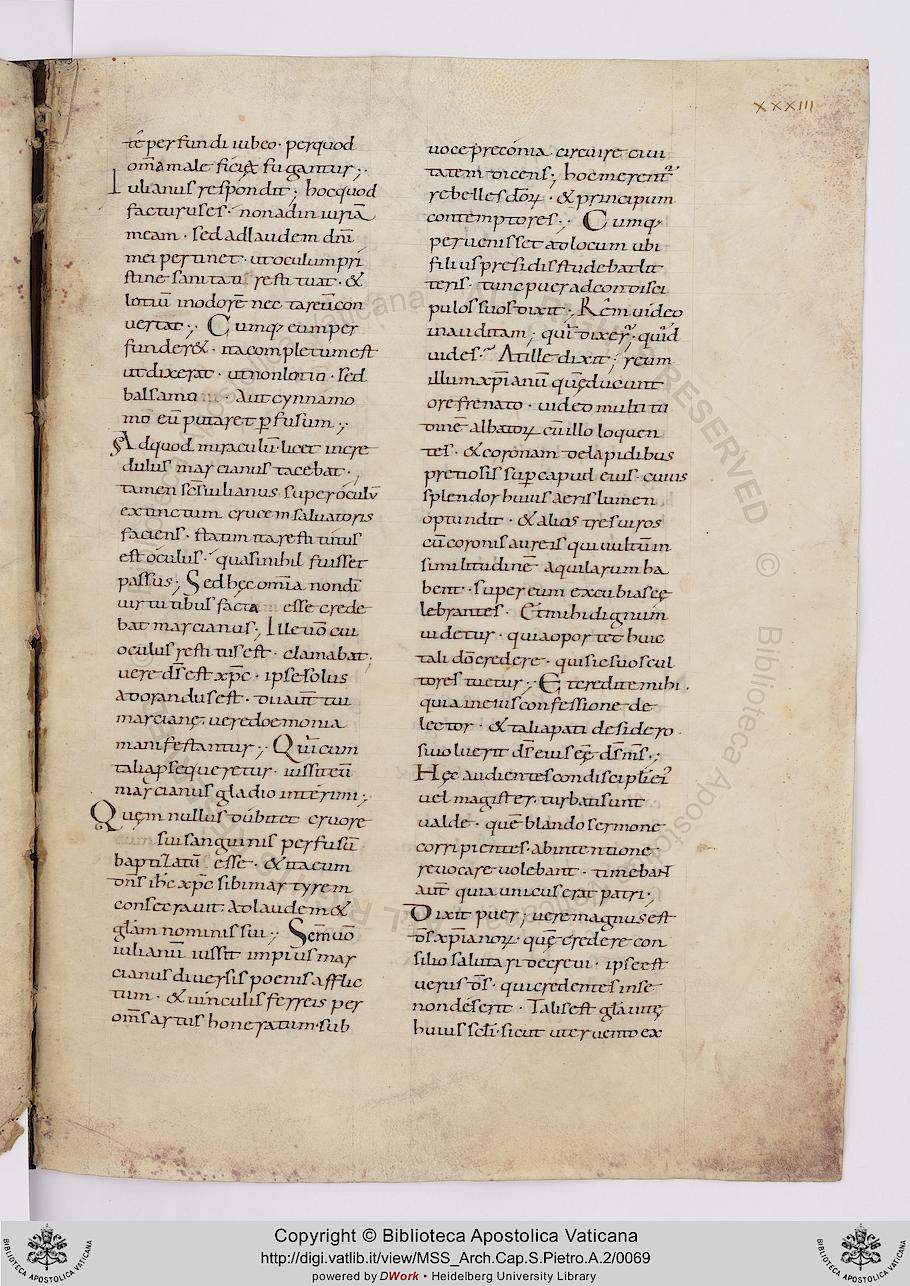 XXXIII
té perfundi iubeo· perquod
om̄a male ficia fugantur;·
Iulianus respondit; hocquod
facturuses· nonadiniuriā
meam· sedadlaudem dn̄i
mei pertinet· utoculumpri
stine sanitati restituat· &
lotiū inodorē nectareū con
vertat;· Cumq; eumper
funder&· itacompletumest
utdixerat· utnonlotio· sed
balsamo aut cynnamo
mo eū putaret ꝑfusum;·
Adquod miraculū· licet incre
dulus marcianus tacebat·
tamen sc̄s iulianus super oculū
extinctum crucem saluatoris
faciens· statim itarestitutus
est oculus· quasi nihil fuisset
passus; Sed hęc om̄ia nondī
uirtutibus facta esse crede
bat marcianus; Ille uō cui
oculus restitutus est· clamabat;
uere ds̄ est xp̄c· ipsesolus
adorandus est· dii aūt tui
marciane· uere doemonia
manifestantur;· Qui cum
talia ꝑsequeretur· iussiteū
marcianus gladio interimi;·
Quem nullus dubitet cruore
sui sanguinis perfusū
baptizatū esse· & itacum
dn̄s ihc̄ xp̄c sibi martyrem
consecrauit; adlaudem &
glā̄m nominis sui;· Scm̄ uō
iulianū iussit impius mar
cianus diuersis poenis afflic
tum· & uinculis ferreis per
om̄s artus honeratum· sub
uoce preconia circuire ciui
tatem dicens; hocmerent᷑
rebelles dōꝝ· & principum
contemptores;· Cumq;
peruenisset adlocum ubi
filius presidis studebat lit
teris· tunc puer adcondisci
pulos suos dixit· Rēm uideo
inauditam; qui dixer᷑· quid
uides· At ille dixit; reum
illum xp̄ianū quę ducunt
ore frenato· uideo multitu
dinē albatoꝝ cū illo loquen
tes· & coronam delapidibus
pretiosis suꝑ capud eius· cuius
splendor huius aeris lumen
optundit· & alios tres uiros
cū coronis aureis qui uultūin
similitudinē aquilarum ha
bent· super eum excubias cę
lebrantes· Et mihi dignum
uidetur· quia oportet huic
tali dō credere· qui sic suos cul
tores tuetur;· Et credite mihi·
quia in eius confessione de
lector· & talia pati desidero·
si uoluerit ds̄ eius eę ds̄ ms̄;·
Hęc audientes condiscipuli ei᷑
uel magister· turbati sunt
ualde· quē blando sermone
corripientes· abintentione
reuocare uolebant· timebant
aūt quia unicus erat patri·
Dixit puer; uere magnus est
ds̄ xp̄ianoꝝ· quę credere con
silio salutari decreui· ipse est
uerus ds̄· qui credentes in se
non deserit· Talis est gl̄a uitę
huius scl̄i· sicut uter uento ex
Copyright © Biblioteca Apostolica Vaticana
http://digi.vatlib.it/view/MSS_Arch.Cap.S.Pietro.A.2/0069
powered by DWork • Heidelberg University Library
BIBLIOTECA APOSTOLICA VATICANA
BIBLIOTECA APOSTOLICA VATICANA